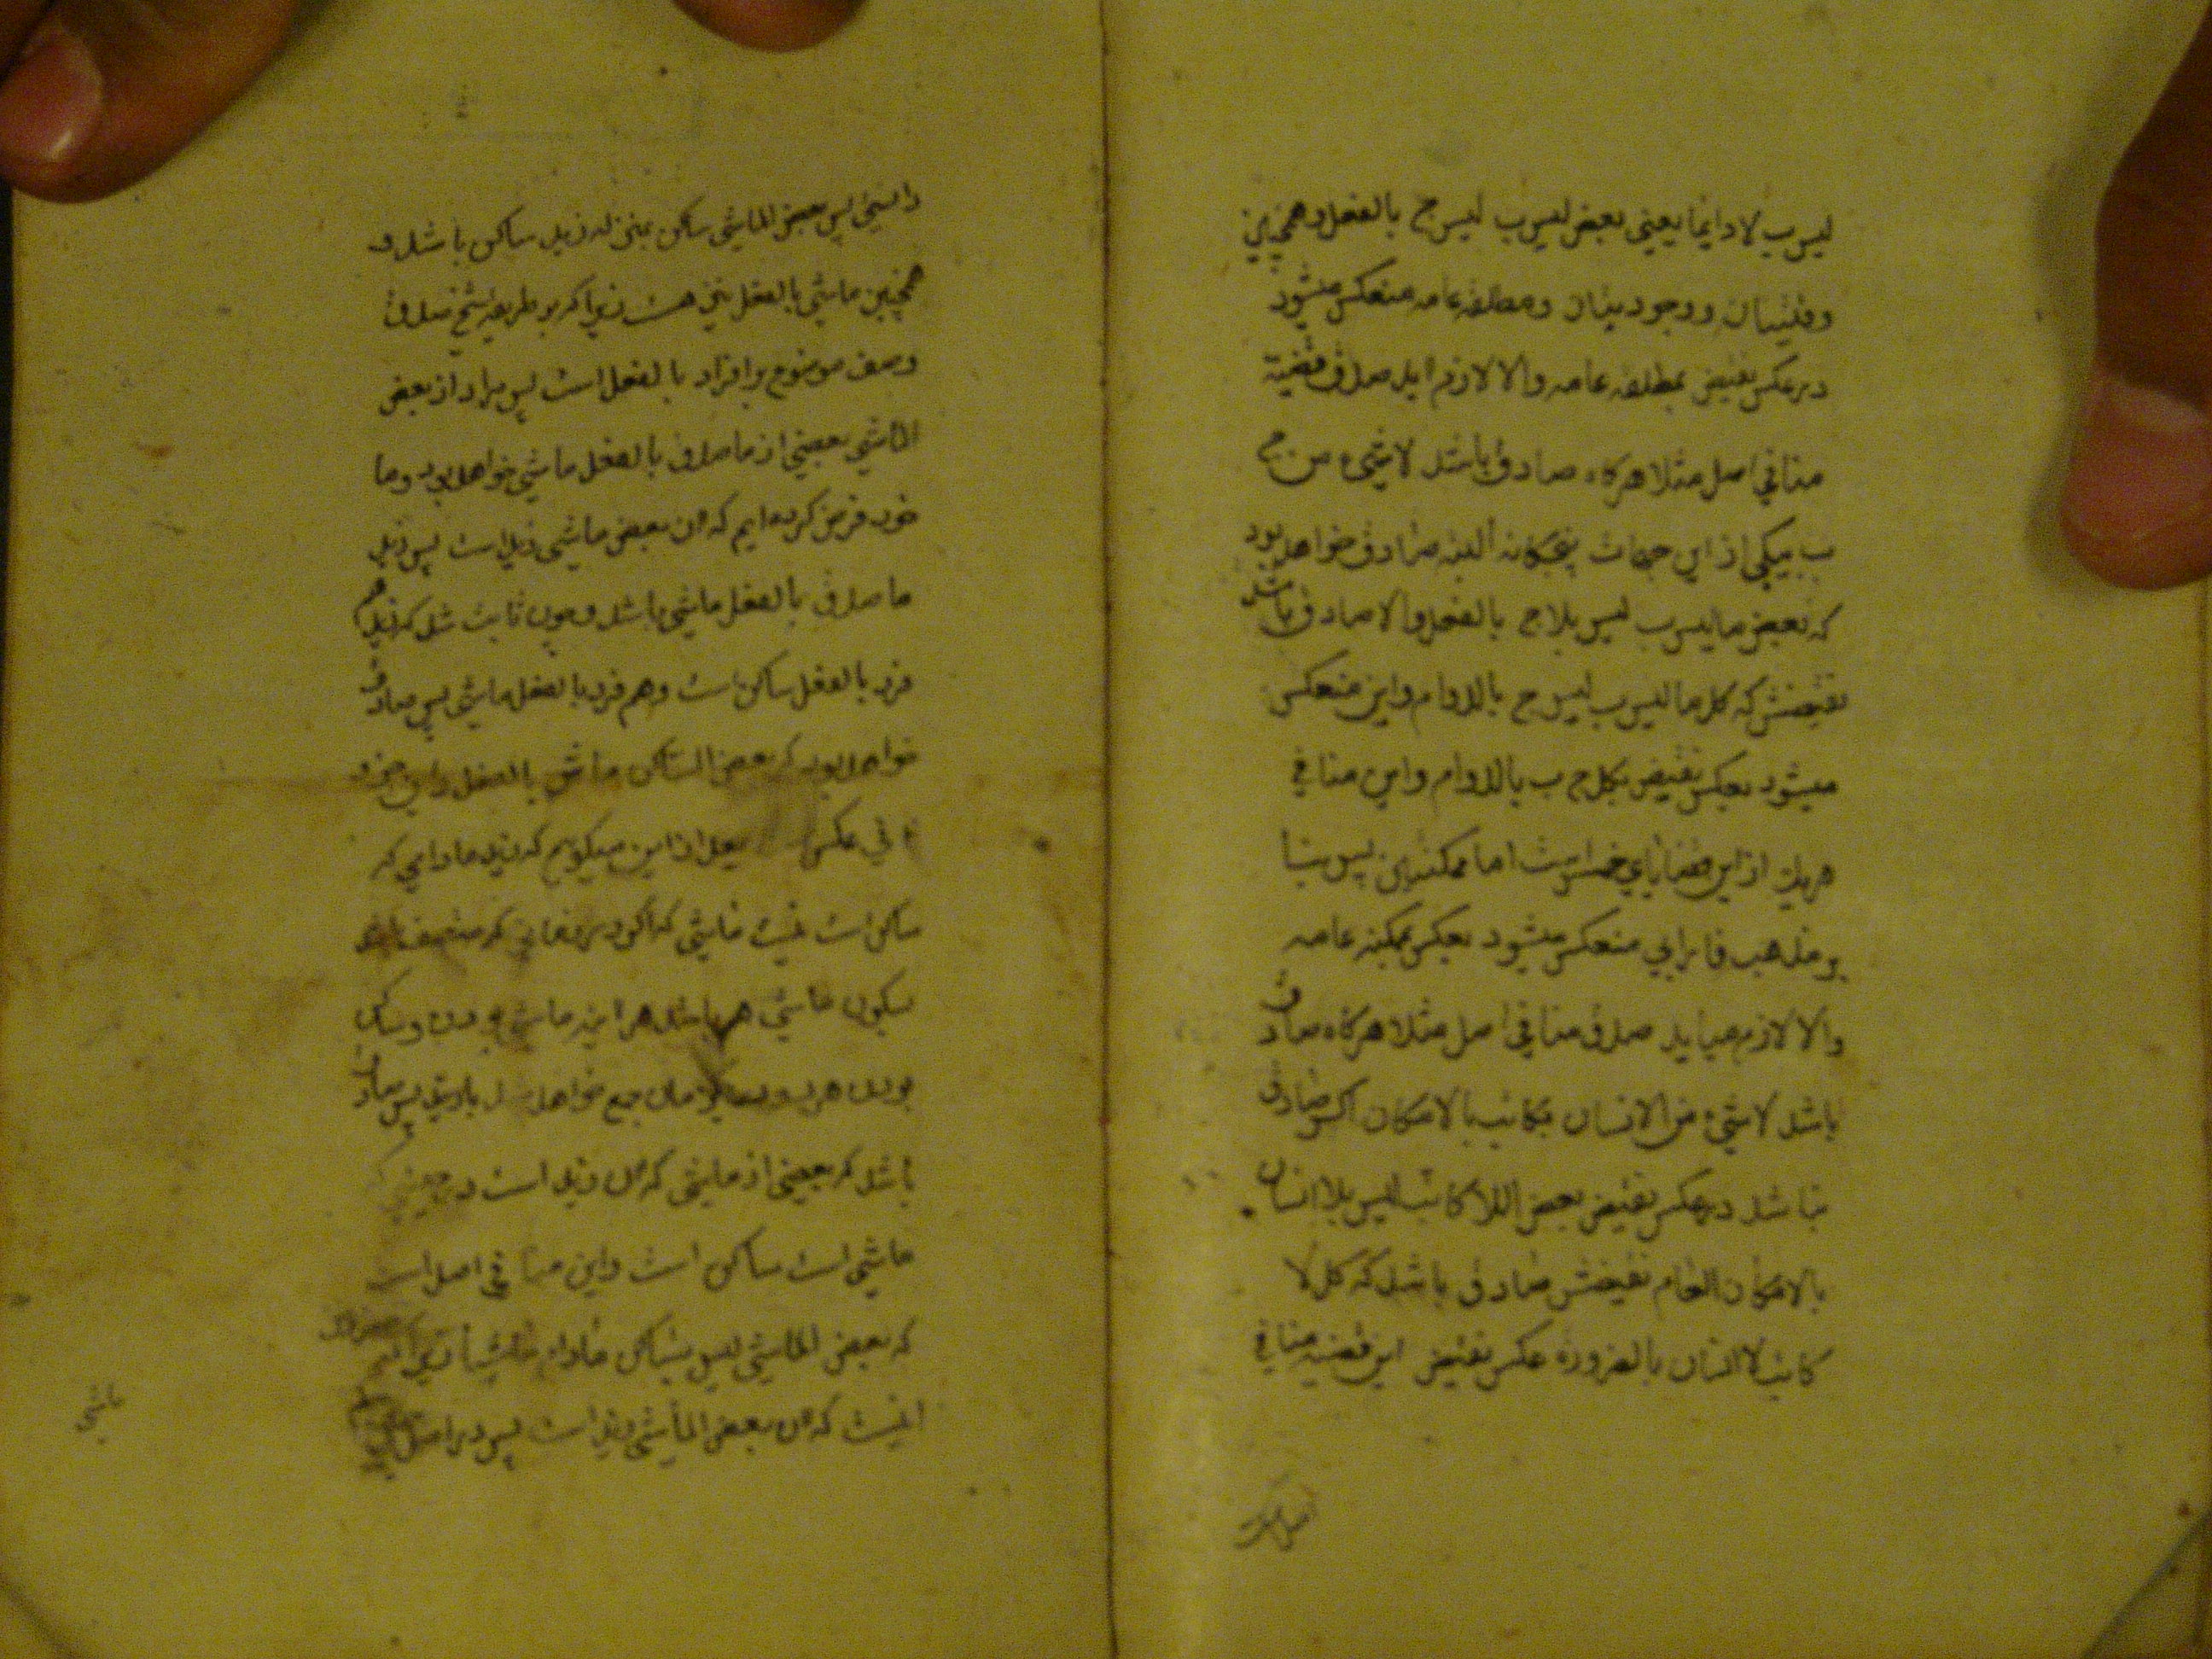 لیس ب لا دائما یعنی بعض لیس ب لیس ج بالفعل و همچنین
وقتیتان و وجودیتان و مطلقه عامه منعکس میشود
در عکس نقیض بمطلقه عامه والا لازم اید صدق قضیة
منافی اصل مثلا هرکاه صادق باشد لا شیء من ج
ب بیکی از این جهات پنجکانه البته صادق خواهد بود
که بعض ما لیس ب لیس بلا ج بالفعل والا صادق باشد
نقیضش که کل ما لیس ب لیس ج بالدوام و این منعکس
میشود بعکس نقیض بکل ج ب بالدوام و این منافی
هریک از این قضایای خمس است اما ممکنتان پس بنا
بر مذهب فارابی منعکس میشود بعکس ممکنه عامه
والا لازم میاید صدق منافی اصل مثلا هرکاه صادق
باشد لا شیء من الانسان بکاتب بالامکان اکر صادق
نباشد در عکس نقیض بعض اللا کاتب لیس بلا انسان
بالامکان العام نقیضش صادق باشد که کل لا
کاتب لا انسان بالضرورة عکس نقیض این قضیه منافی
اصل است
پس بعض الماشی ساکن زید ساکن باشد و
همچنین ماشی بالفعل نیز هست زیرا که بر طریقه شیخ صدق
وصف موضوع بر افراد بالفعل است پس مراد از بعض
الماشی بعضی از ما صدق بالفعل ماشی خواهد بود و ما
خود فرض کرده ایم که ان بعض ماشی زید است پس زید
ما صدق بالفعل ماشی باشد و چون ثابت شد که زید هم
فرد بالفعل ساکن است و هم فرد بالفعل ماشی پس صادق
خواهد بود که بعض الساکن ماش بالفعل و این جزو
عکس بعد از این میکویم که زید مادامی که
ساکن است نیست ماشی که اکر در زمانی که متصف
بسکون ماشی هم باشد هر اینه ماشی بودن و ساکن
بودن هر دو جمع خواهد شد پس صادق
باشد که بعضی از ماشی که ان زید است در
ماشی است ساکن است و این منافی اصل است
که بعض الماشی لیس بساکن مادام ماشیا
انیست که ان بعض الماشی زید است پس در اصل
ماشی